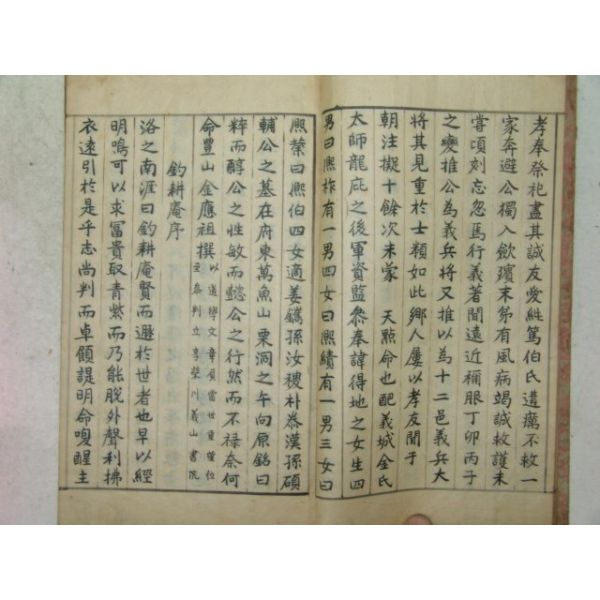 孝奉祭祀盡其誠友愛純篤伯氏遘癘不救一
家奔避公獨入飮殯末弟有風病竭誠救護未
嘗頃刻忘忽焉行義著聞遠近禰服丁卯丙子
之變推公為義兵將又推以為十二邑義兵大
將其見重於士類如此鄕人屢以孝友聞于
朝注擬十餘次未蒙 天點命也配義城金氏
太師龍庇之後軍資監叅奉諱得地之女生四
男曰熙祚有一男四女曰熙績有一男三女曰
熙榮曰熙伯四女適姜鑴孫汝稷朴泰漢孫碩
輔公之墓在府東萬魚山栗洞之午向原銘曰
粹而醇公之性敏而懿公之行然而不祿奈何
命豊山金應祖撰以道學文章負當世重望位
至叅判立享榮川義山書院
釣耕庵序
洛之南涯曰釣耕庵賢而遯於世者也早以經
明鳴可以求富貴取青紫而乃能脫外聲利拂
衣遠引於是乎志尚判而卓顧諟明命嗅醒主